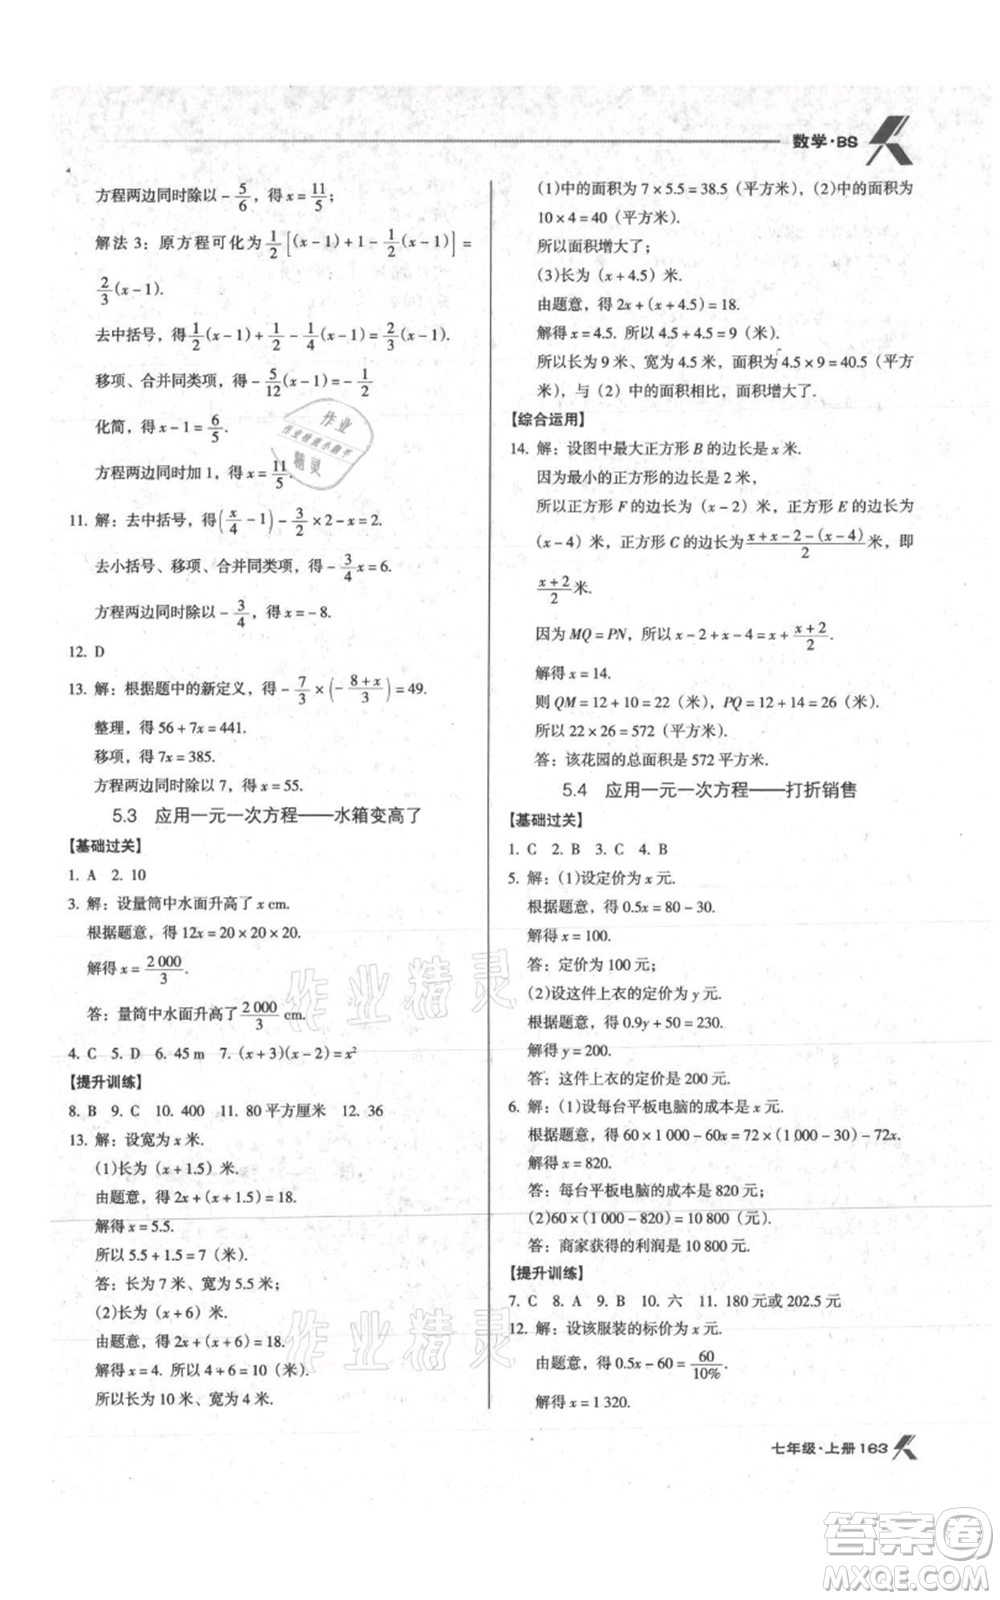 数学·BS
方程两边同时除以 $-\frac{5}{6}$，得 $x=\frac{11}{5}$；
解法 3：原方程可化为 $\frac{1}{2}\left[(x-1)+1-\frac{1}{2}(x-1)\right]=$
$\frac{2}{3}(x-1)$.
去中括号，得 $\frac{1}{2}(x-1)+\frac{1}{2}-\frac{1}{4}(x-1)=\frac{2}{3}(x-1)$.
移项、合并同类项，得 $-\frac{5}{12}(x-1)=-\frac{1}{2}$
化简，得 $x-1=\frac{6}{5}$.
方程两边同时加 1，得 $x=\frac{11}{5}$.
11. 解：去中括号，得 $\left(\frac{x}{4}-1\right)-\frac{3}{2}\times2-x=2$.
去小括号、移项、合并同类项，得 $-\frac{3}{4}x=6$.
方程两边同时除以 $-\frac{3}{4}$，得 $x=-8$.
12. D
13. 解：根据题中的新定义，得 $-\frac{7}{3}\times\left(-\frac{8+x}{3}\right)=49$.
整理，得 56+7x=441.
移项，得 7x=385.
方程两边同时除以7，得 x=55.
5.3 应用一元一次方程——水箱变高了
【基础过关】
1. A 2. 10
3. 解：设量筒中水面升高了 x cm.
根据题意，得 12x=20×20×20.
解得 $x=\frac{2\,000}{3}$.
答：量筒中水面升高了 $\frac{2\,000}{3}$ cm.
4. C 5. D 6. 45 m 7. $(x+3)(x-2)=x^2$
【提升训练】
8. B 9. C 10. 400 11. 80 平方厘米 12. 36
13. 解：设宽为 x 米.
(1)长为（x+1.5）米.
由题意，得 2x+(x+1.5)=18.
解得 x=5.5.
所以 5.5+1.5=7（米）.
答：长为 7 米、宽为 5.5 米.
(2)长为（x+6）米.
由题意，得 2x+(x+6)=18.
解得 x=4. 所以 4+6=10（米）.
所以长为 10 米、宽为 4 米.
(1)中的面积为 7×5.5=38.5（平方米），(2)中的面积为
10×4=40（平方米）.
所以面积增大了；
(3)长为（x+4.5）米.
由题意，得 2x+(x+4.5)=18.
解得 x=4.5. 所以 4.5+4.5=9（米）.
所以长为 9 米、宽为 4.5 米、面积为 4.5×9=40.5（平方
米），与（2）中的面积相比，面积增大了.
【综合运用】
14. 解：设图中最大正方形 B 的边长是 x 米.
因为最小的正方形的边长是 2 米，
所以正方形 F 的边长为（x-2）米，正方形 E 的边长为
(x-4）米，正方形 C 的边长为 $\frac{x+x-2-(x-4)}{2}$ 米，即
$\frac{x+2}{2}$ 米.
因为 MQ=PN，所以 $x-2+x-4=x+\frac{x+2}{2}$.
解得 x=14.
则 QM=12+10=22（米），PQ=12+14=26（米）.
所以 22×26=572（平方米）.
答：该花园的总面积是 572 平方米.
5.4 应用一元一次方程——打折销售
【基础过关】
1. C 2. B 3. C 4. B
5. 解：(1)设定价为 x 元.
根据题意，得 0.5x=80-30.
解得 x=100.
答：定价为 100 元；
(2)设这件上衣的定价为 y 元.
根据题意，得 0.9y+50=230.
解得 y=200.
答：这件上衣的定价是 200 元.
6. 解：(1)设每台平板电脑的成本是 x 元.
根据题意，得 60×1 000-60x=72×(1 000-30)-72x.
解得 x=820.
答：每台平板电脑的成本是 820 元；
(2)60×(1 000-820)=10 800（元）.
答：商家获得的利润是 10 800 元.
【提升训练】
7. C 8. A 9. B 10. 六 11. 180 元或 202.5 元
12. 解：设该服装的标价为 x 元.
由题意，得 $0.5x-60=\frac{60}{10\%}$.
解得 x=1 320.
七年级·上册 163
作业
作业精灵
作业精灵
答案卷
MXQE.COM